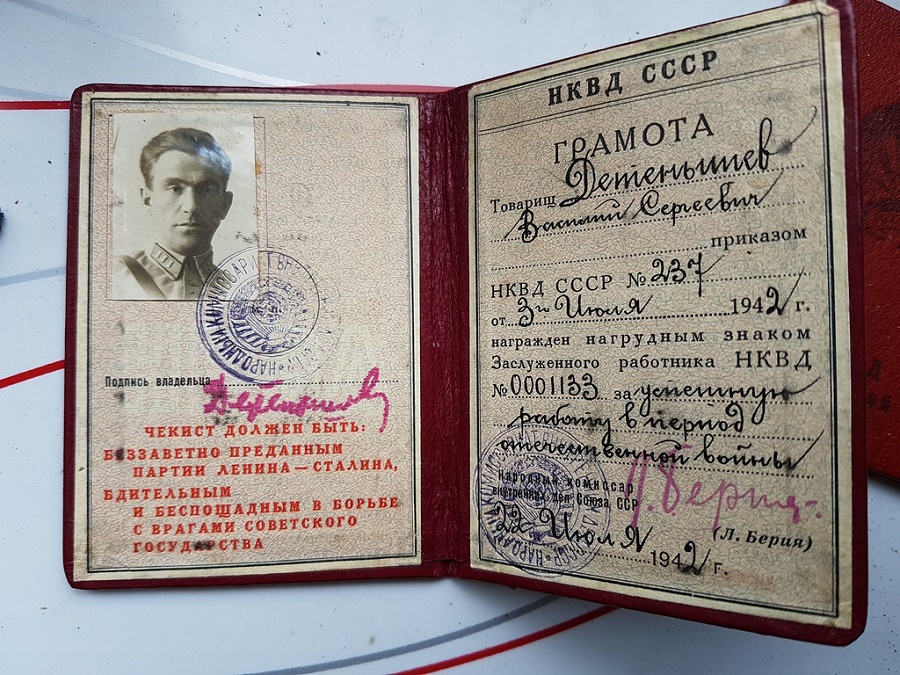 Подпись владельца
ЧЕКИСТ ДОЛЖЕН БЫТЬ:
БЕЗЗАВЕТНО ПРЕДАННЫМ
ПАРТИИ ЛЕНИНА—СТАЛИНА,
БДИТЕЛЬНЫМ
И БЕСПОЩАДНЫМ В БОРЬБЕ
С ВРАГАМИ СОВЕТСКОГО
ГОСУДАРСТВА
НКВД СССР
ГРАМОТА
Товарищ Детенышев
Василий Сергеевич
приказом
НКВД СССР № 237
от Июля 1942 г.
награжден нагрудным знаком
Заслуженного работника НКВД
№ 0001133 за успешную
работу в период
отечественной войны
Народный комиссар
внутренних дел Союза ССР
Л. Берия
(Л. Берия)
22 Июля 1942 г.